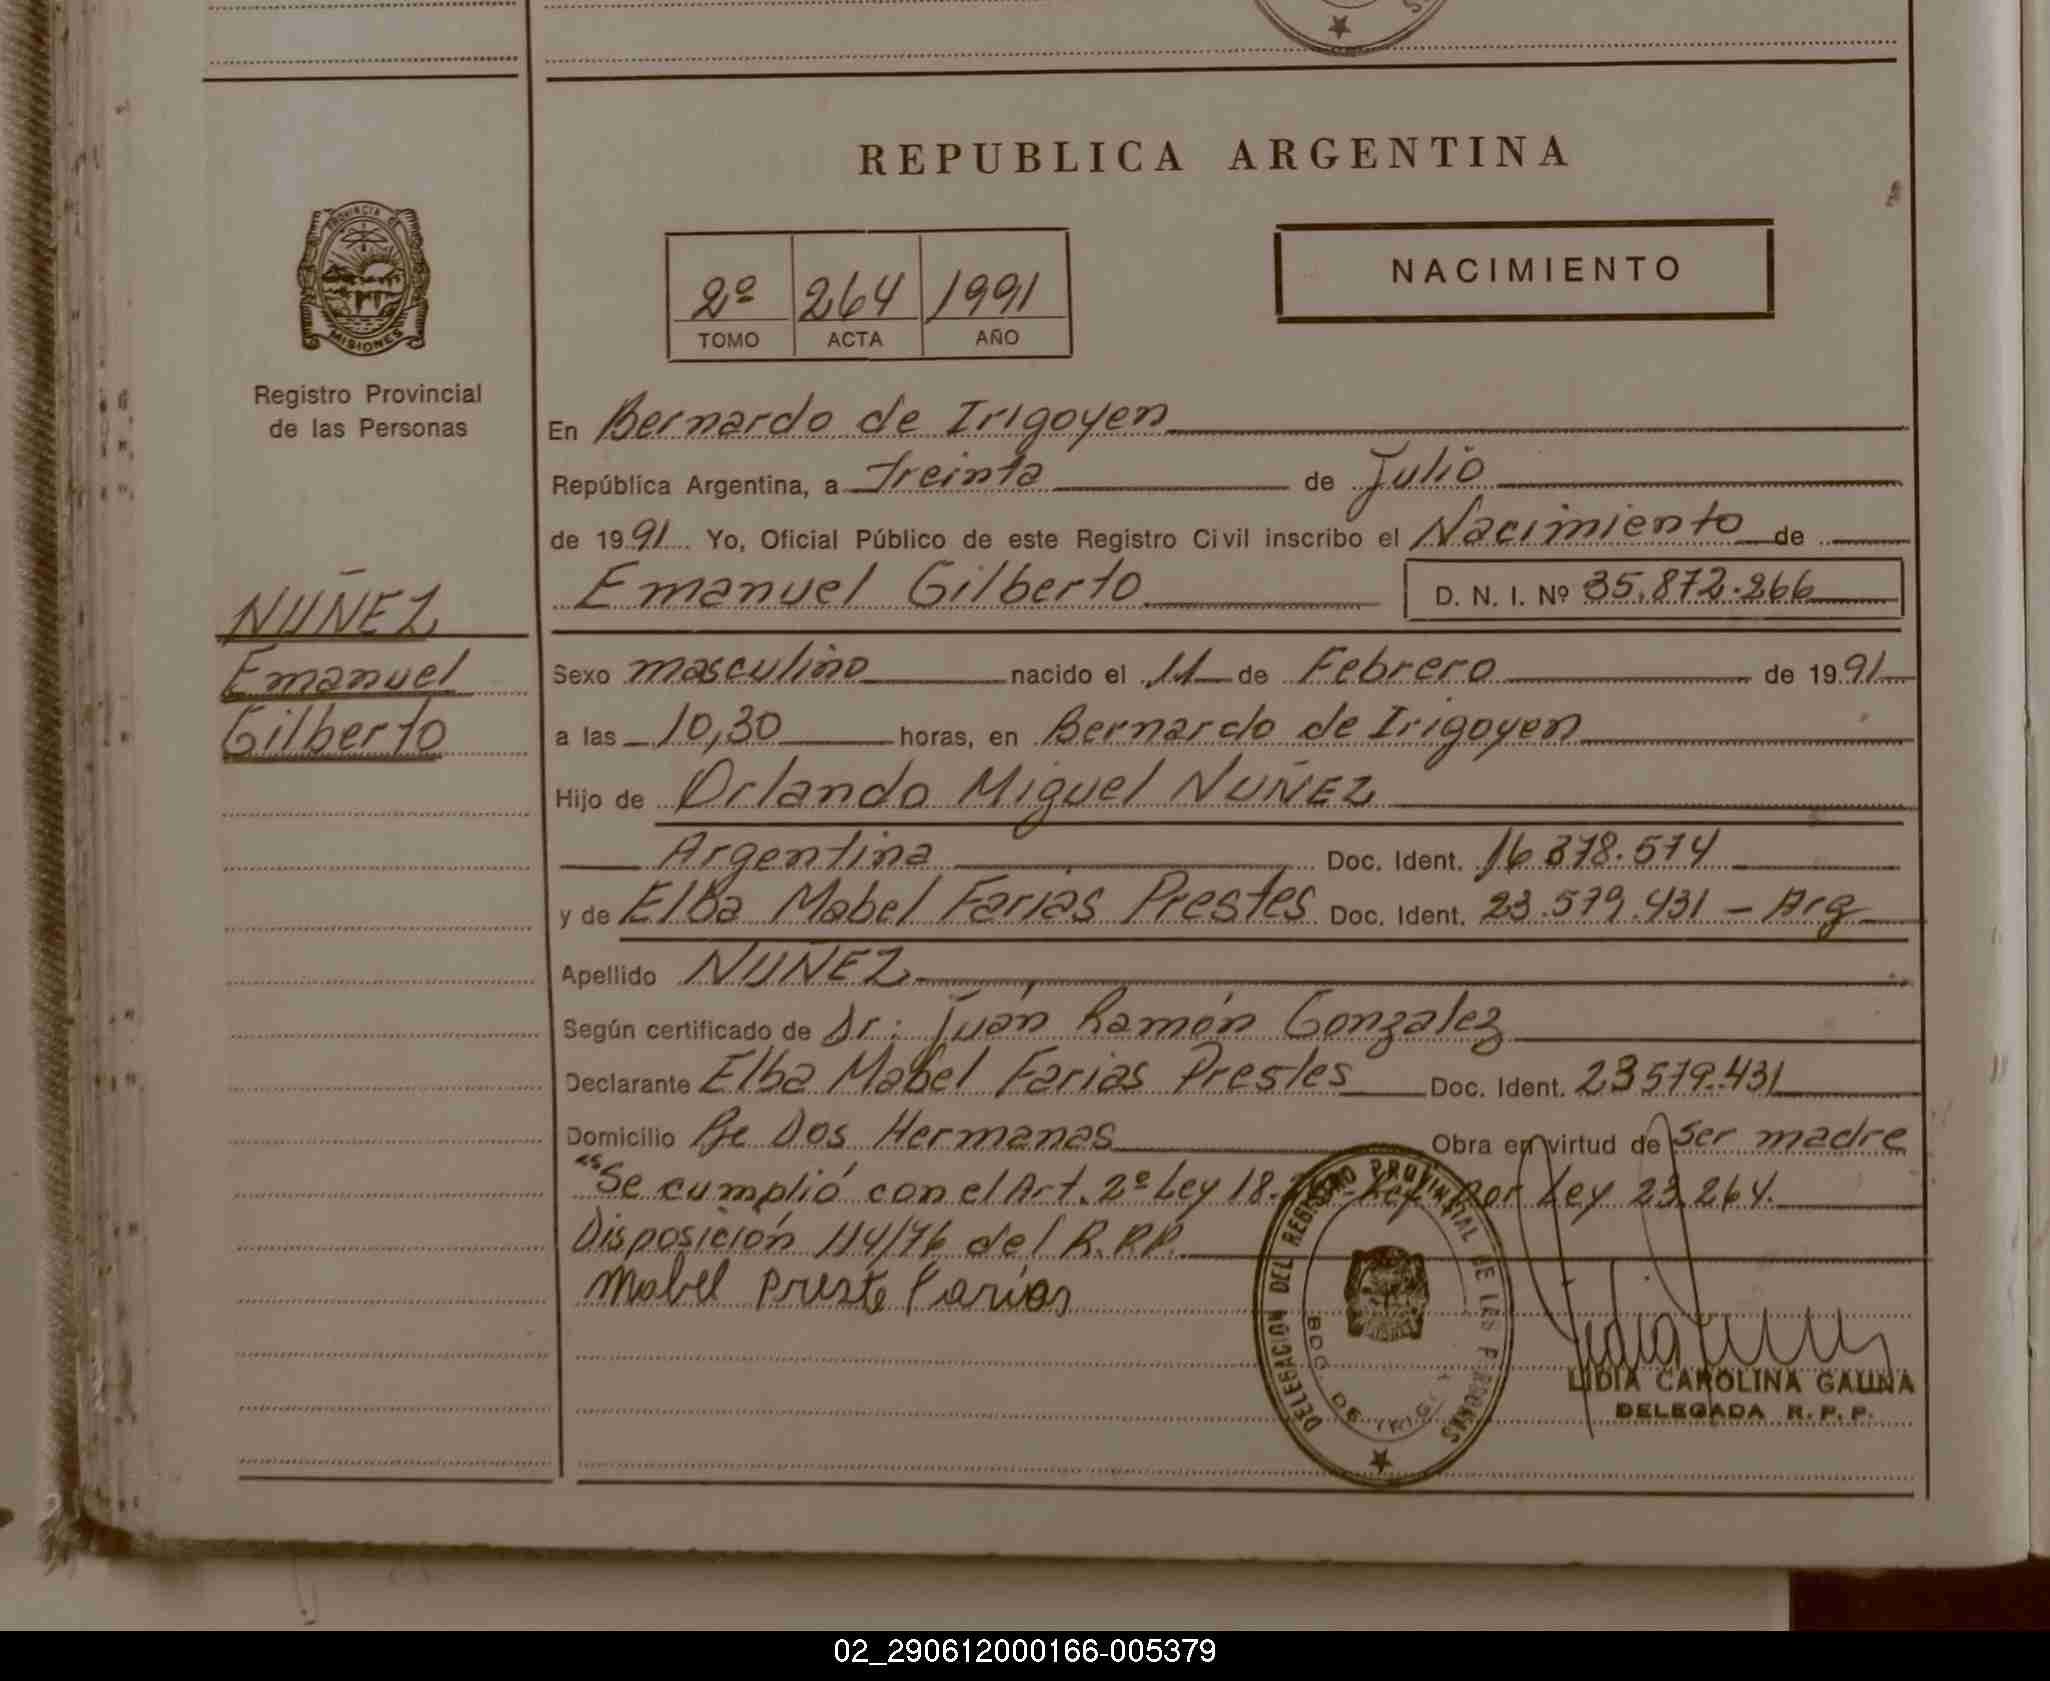 REPUBLICA ARGENTINA
PROVINCIA DE
MISIONES
Registro Provincial
de las Personas
NUÑEZ
Emanuel
Gilberto
2º 264 1991
TOMO ACTA AÑO
NACIMIENTO
En Bernardo de Irigoyen
República Argentina, a treinta de Julio
de 1991 Yo, Oficial Público de este Registro Civil inscribo el Nacimiento de
Emanuel Gilberto D. N. I. Nº 35.872.266
Sexo masculino nacido el 11 de Febrero de 1991
a las 10,30 horas, en Bernardo de Irigoyen
Hijo de Orlando Miguel NUÑEZ
Argentina Doc. Ident. 16.378.574
y de Elba Mabel Farias Prestes Doc. Ident. 23.579.431 - Arg
Apellido NUÑEZ
Según certificado de Dr: Juan Ramón Gonzalez
Declarante Elba Mabel Farias Prestes Doc. Ident. 23579.431
Domicilio Pje Dos Hermanas Obra en virtud de ser madre
"Se cumplió con el Art. 2º Ley 18. por Ley 23.264.
Disposición 114/76 del R.P.P.
Mabel Preste Farias
DELEGACION DEL REGISTRO PROVINCIAL DE LAS PERSONAS
BDO. DE IRIGOYEN
LIDIA CAROLINA GAUNA
DELEGADA R. P. P.
02_290612000166-005379